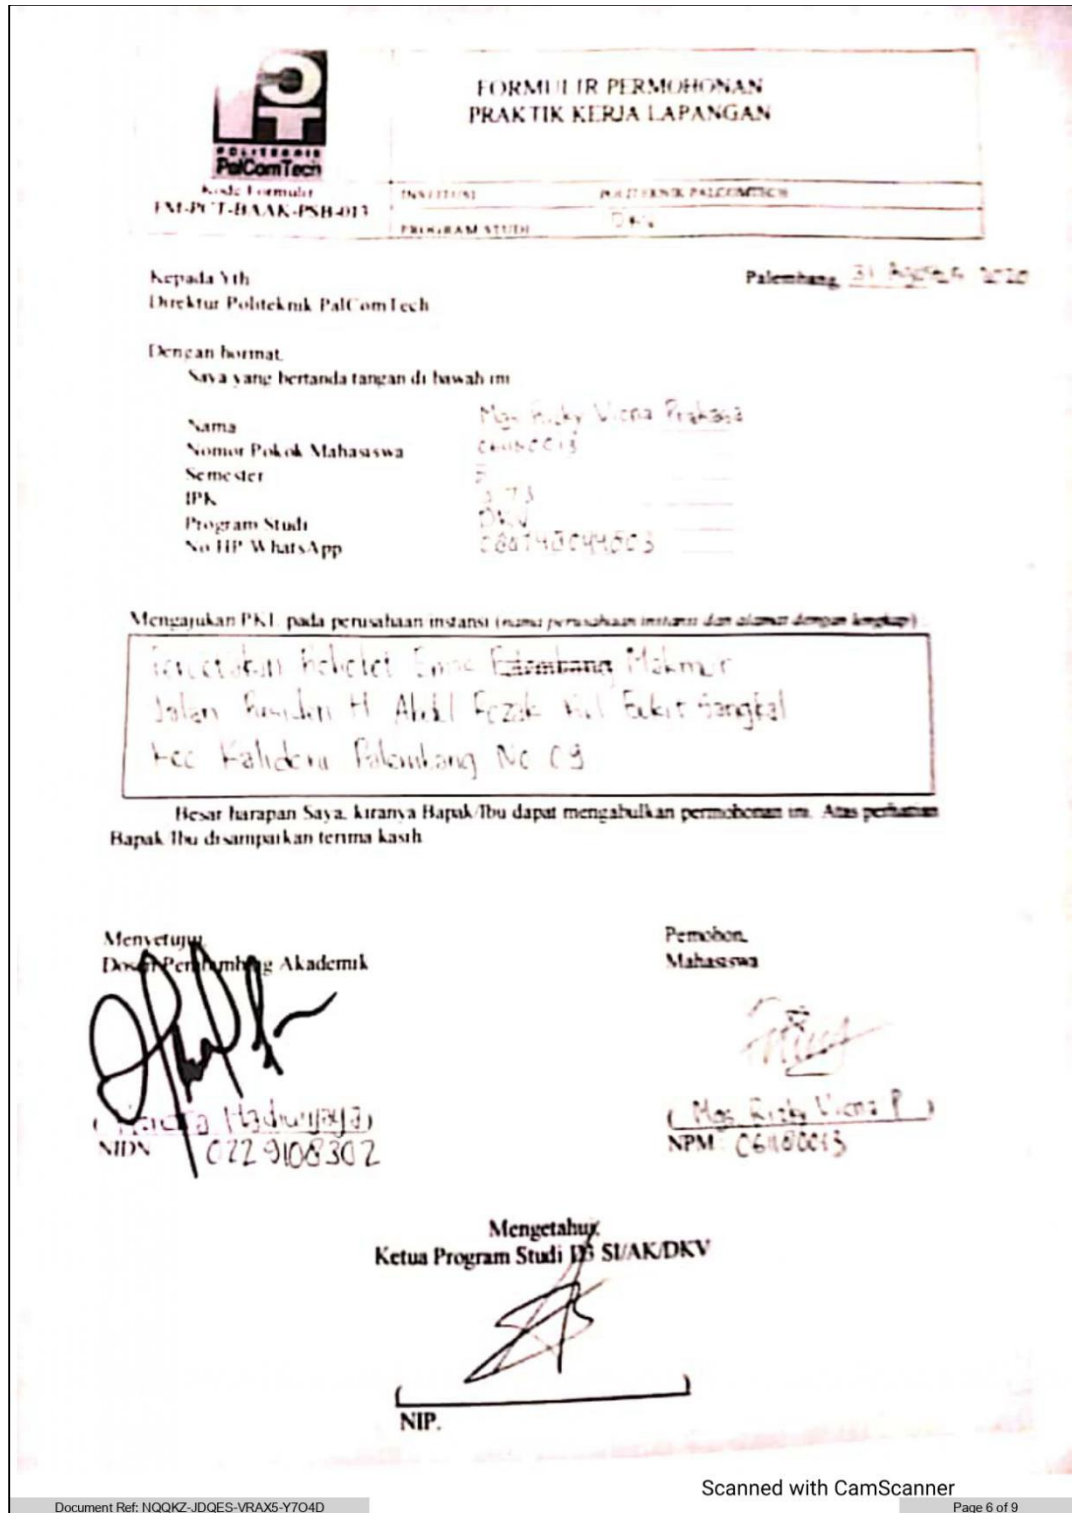 FORMULIR PERMOHONAN
PRAKTIK KERJA LAPANGAN
POLITEKNIK
PalComTech
Kode Formulir
FM-PCT-BAAK-PSB-013
INSTITUSI POLITEKNIK PALCOMTECH
PROGRAM STUDI DKV
Kepada Yth
Direktur Politeknik PalComTech
Palembang, 31 Agustus 2020
Dengan hormat,
Saya yang bertanda tangan di bawah ini
Nama Mgs Rizky Wicna Prakasa
Nomor Pokok Mahasiswa 061180013
Semester 5
IPK 3.73
Program Studi DKV
No HP WhatsApp
Mengajukan PKL pada perusahaan instansi (nama perusahaan instansi dan alamat dengan lengkap) :
Percetakan Makmur
Jalan Residen H Abdul Rozak Kel Bukit Sangkal
Kec Kalidoni Palembang No 09
Besar harapan Saya, kiranya Bapak/Ibu dapat mengabulkan permohonan ini. Atas perhatian
Bapak Ibu disampaikan terima kasih
Menyetujui,
Dosen Pembimbing Akademik
Pemohon,
Mahasiswa
( Hadiwijaya)
NIDN 0229108302
( Mgs Rizky Wicna P )
NPM : 061180013
Mengetahui,
Ketua Program Studi D3 SI/AK/DKV
( )
NIP.
Scanned with CamScanner
Document Ref: NQQKZ-JDQES-VRAX5-Y7O4D
Page 6 of 9